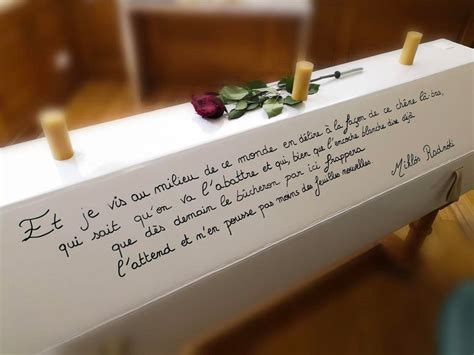 Et je vis au milieu de ce monde en délire à la façon de ce chêne là bas,
qui sait qu'on va l'abattre et qui, bien que l'encoche blanche dise déjà
que dès demain le bûcheron par ici frappera
l'attend et n'en pousse pas moins des feuilles nouvelles.
Miklós Radnóti